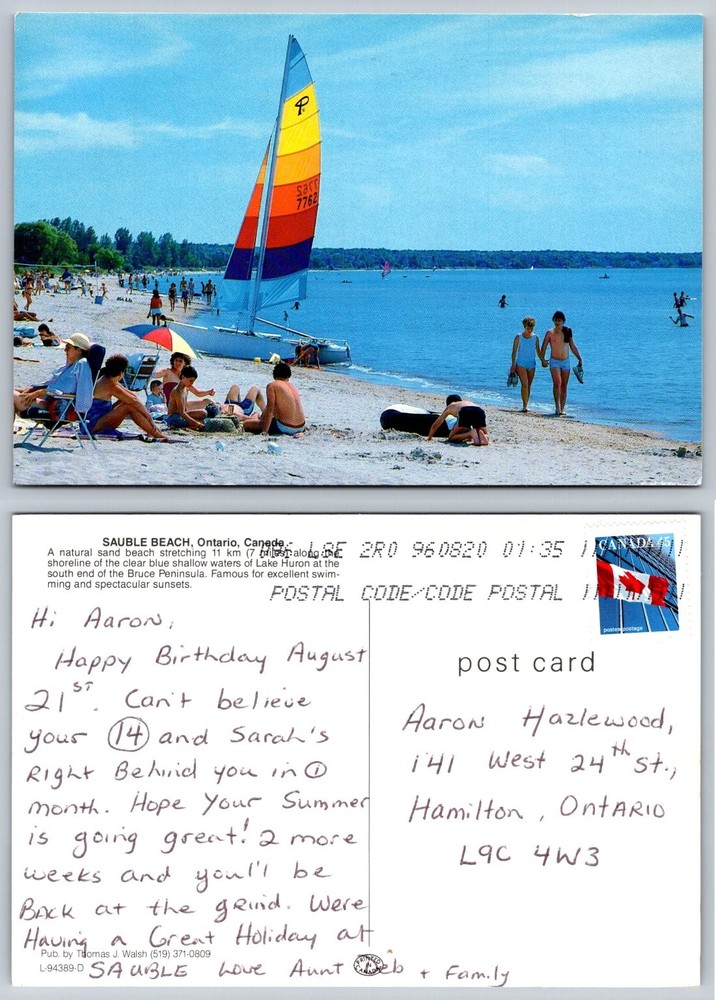 P
7762
7762
SAUBLE BEACH, Ontario, Canada
A natural sand beach stretching 11 km (7 miles) along the
shoreline of the clear blue shallow waters of Lake Huron at the
south end of the Bruce Peninsula. Famous for excellent swim-
ming and spectacular sunsets.
L8E 2R0 960820 01:35
POSTAL CODE/CODE POSTAL
CANADA 45
postes postage
Hi Aaron,
Happy Birthday August
21ST. Can't believe
your 14 and Sarah's
Right Behind you in 1
month. Hope Your Summer
is going great! 2 more
weeks and you'll be
BACK at the grind. Were
Having a Great Holiday at
SAUBLE Love Aunt Deb + Family
post card
Aaron Hazlewood,
141 West 24th St.,
Hamilton, ONTARIO
L9C 4W3
Pub. by Thomas J. Walsh (519) 371-0809
L-94389-D
PRINTED IN CANADA